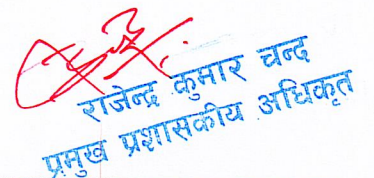 राजेन्द्र कुमार चन्द
प्रमुख प्रशासकीय अधिकृत